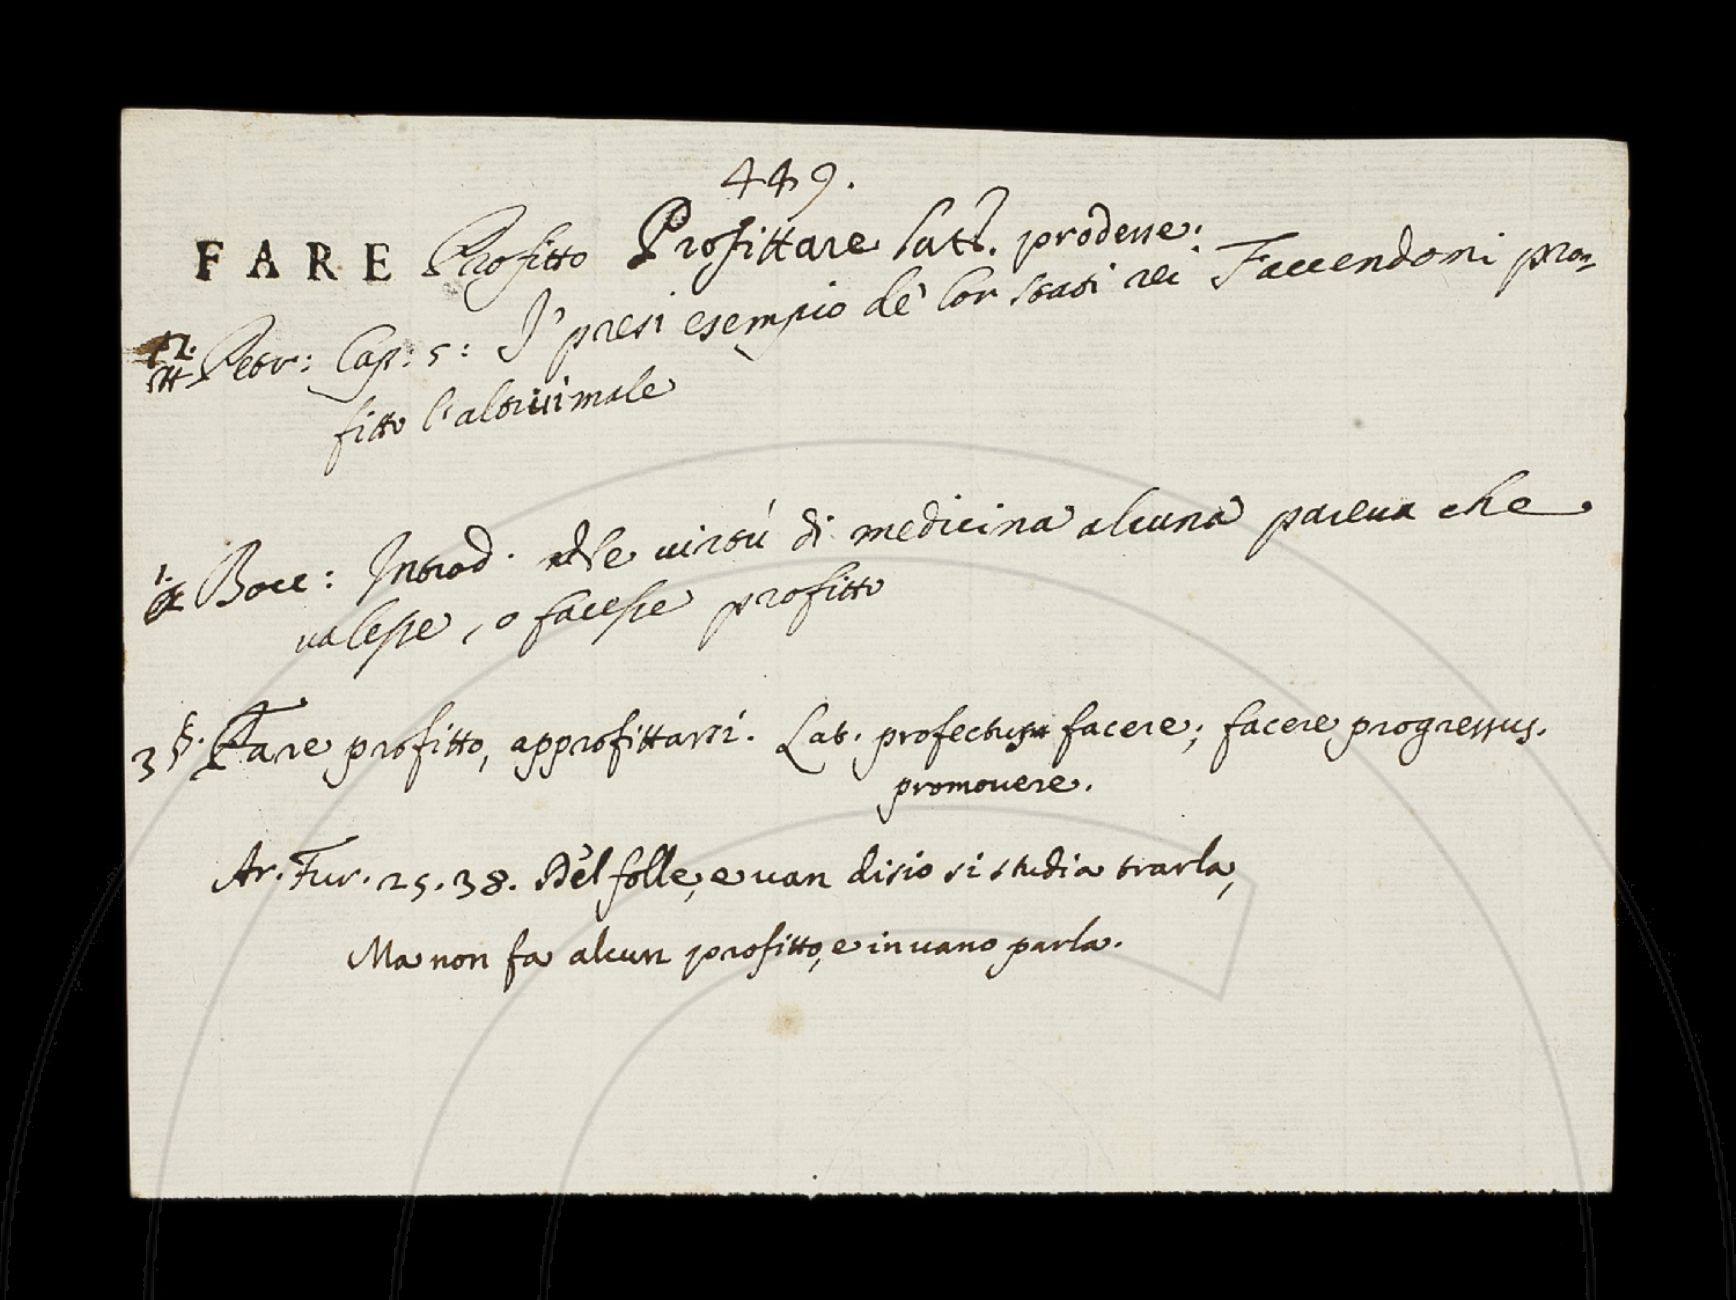 449.
FARE Profitto Profittare latt. prodesse.
2. Petr: Cap: 5: J' presi esempio de' lor stati rei Faccendomi pro-
fitto l'altrui male
1. Bocc: Introd. virtù di medicina alcuna pareua che
ualesse, o facesse profitto
3 §. Fare profitto, approfittarsi. Lat. profectus facere; facere progressus.
promouere.
Ar. Fur. 25. 38. Del folle, e uan disio si studia trarla,
Ma non fa alcun profitto, e inuano parla.